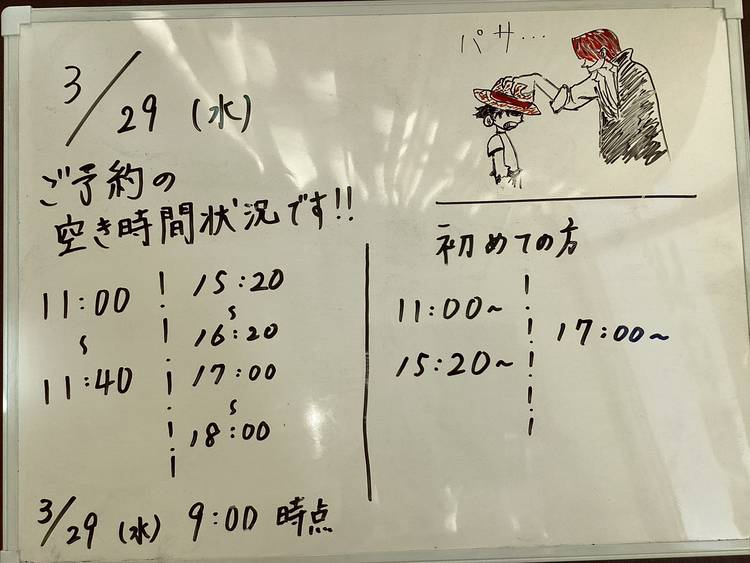 3/29 (水)
パサ...
ご予約の
空き時間状況です!!
11:00
〜
11:40
15:20
〜
16:20
17:00
〜
18:00
初めての方
11:00〜
15:20〜
17:00〜
3/29 (水) 9:00 時点